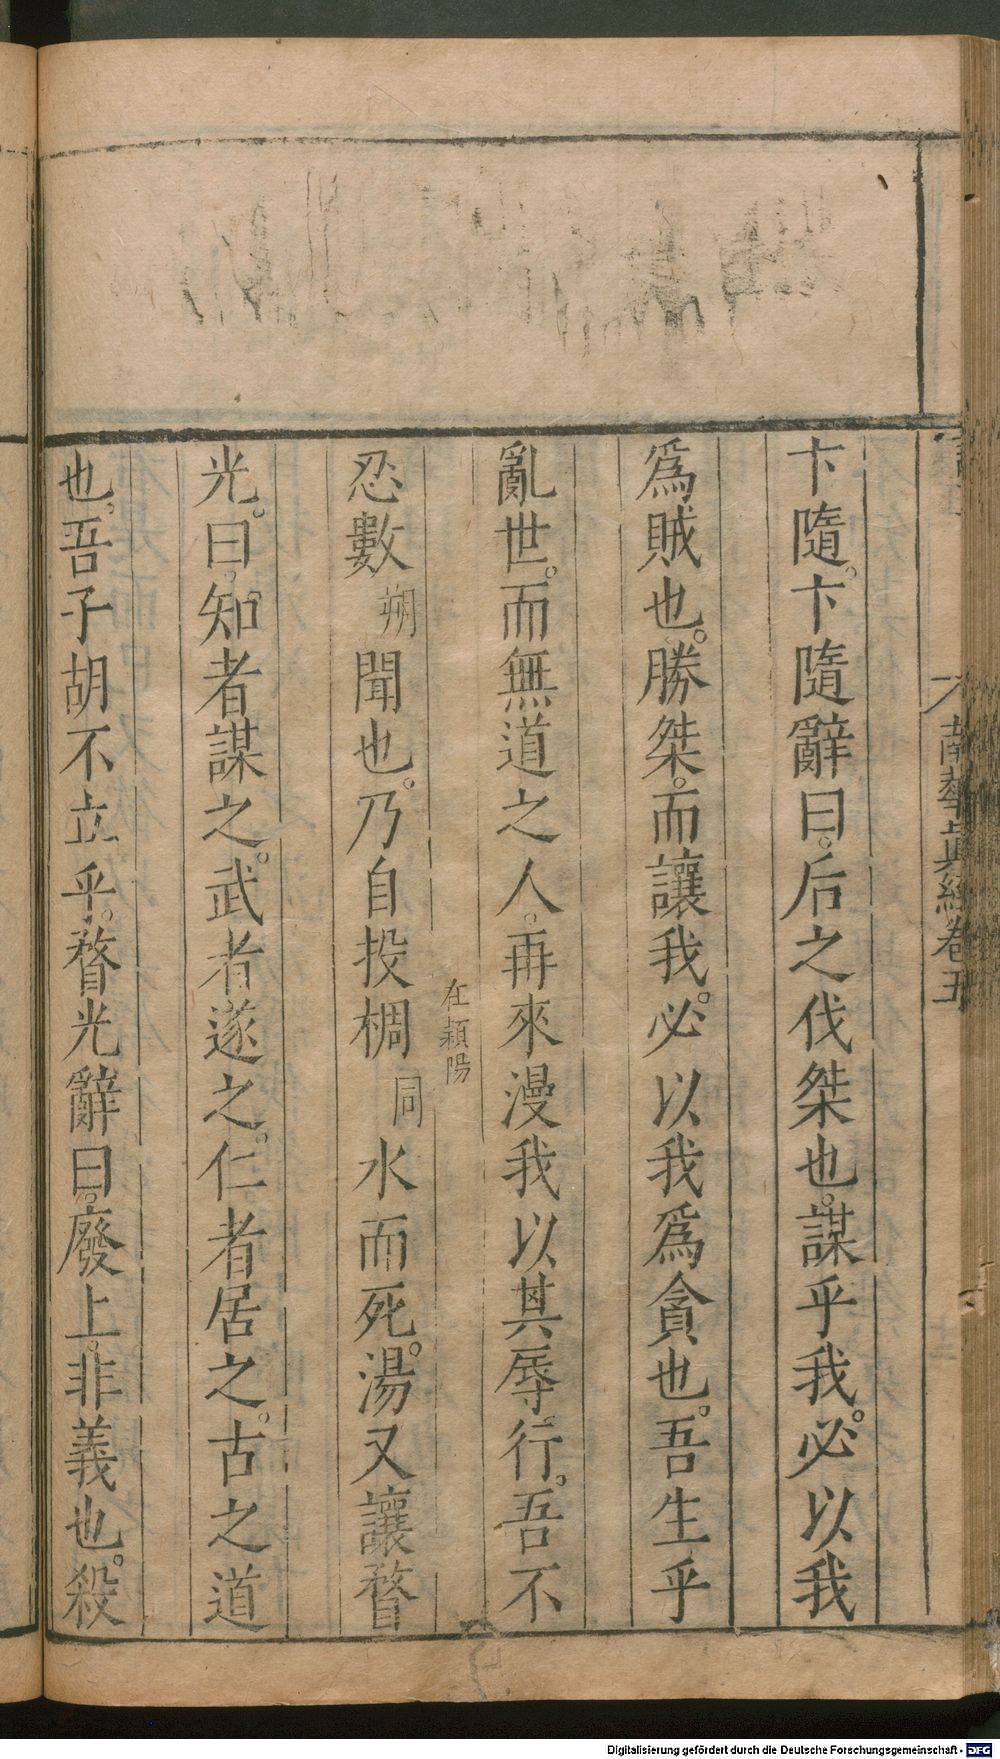 南華眞經卷五
卞隨。卞隨辭曰。后之伐桀也。謀乎我。必以我
爲賊也。勝桀。而讓我。必以我爲貪也。吾生乎
亂世。而無道之人。再來漫我以其辱行。吾不
忍數朔聞也。乃自投椆同水而死。湯又讓瞀
在潁陽
光。曰。知者謀之。武者遂之。仁者居之。古之道
也。吾子胡不立乎。瞀光辭曰。廢上。非義也。殺
Digitalisierung gefördert durch die Deutsche Forschungsgemeinschaft - DFG